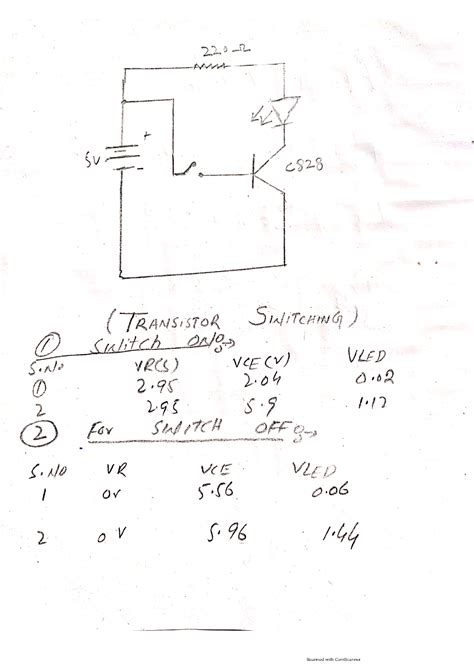 220 Ω
5V
+
-
C828
(TRANSISTOR SWITCHING)
① Switch ON
S.No VR(S) VCE(V) VLED
① 2.95 2.04 0.02
2 2.95 5.9 1.17
② For SWITCH OFF
S.NO VR VCE VLED
1 0V 5.56 0.06
2 0V 5.96 1.44
Scanned with CamScanner